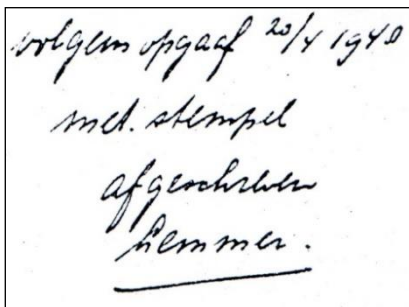 volgens opgaaf 20/4 1940
met. stempel
afgeschreven
Lemmer.